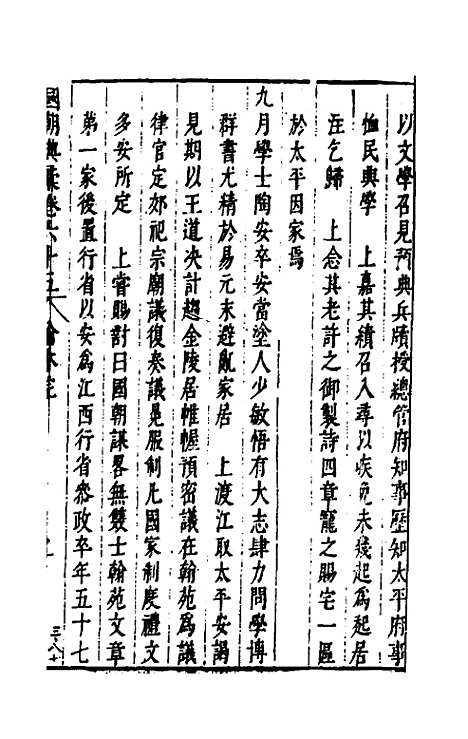 以文學召見預典兵牘授總管府知事歷知太平府事
恤民興學　上嘉其績召入尋以疾免未幾起為起居
注乞歸　上念其老許之御製詩四章寵之賜宅一區
於太平因家焉
九月學士陶安卒安當塗人少敏悟有大志肆力問學博
群書尤精於易元末避亂家居　上渡江取太平安謁
見期以王道決計趨金陵居帷幄預密議在翰苑為議
律官定郊祀宗廟議復奏議冕服制凡國家制度禮文
多安所定　上嘗賜對曰國朝謀畧無雙士翰苑文章
第一家後置行省以安為江西行省參政卒年五十七
國朝典彙卷六十五　翰林院